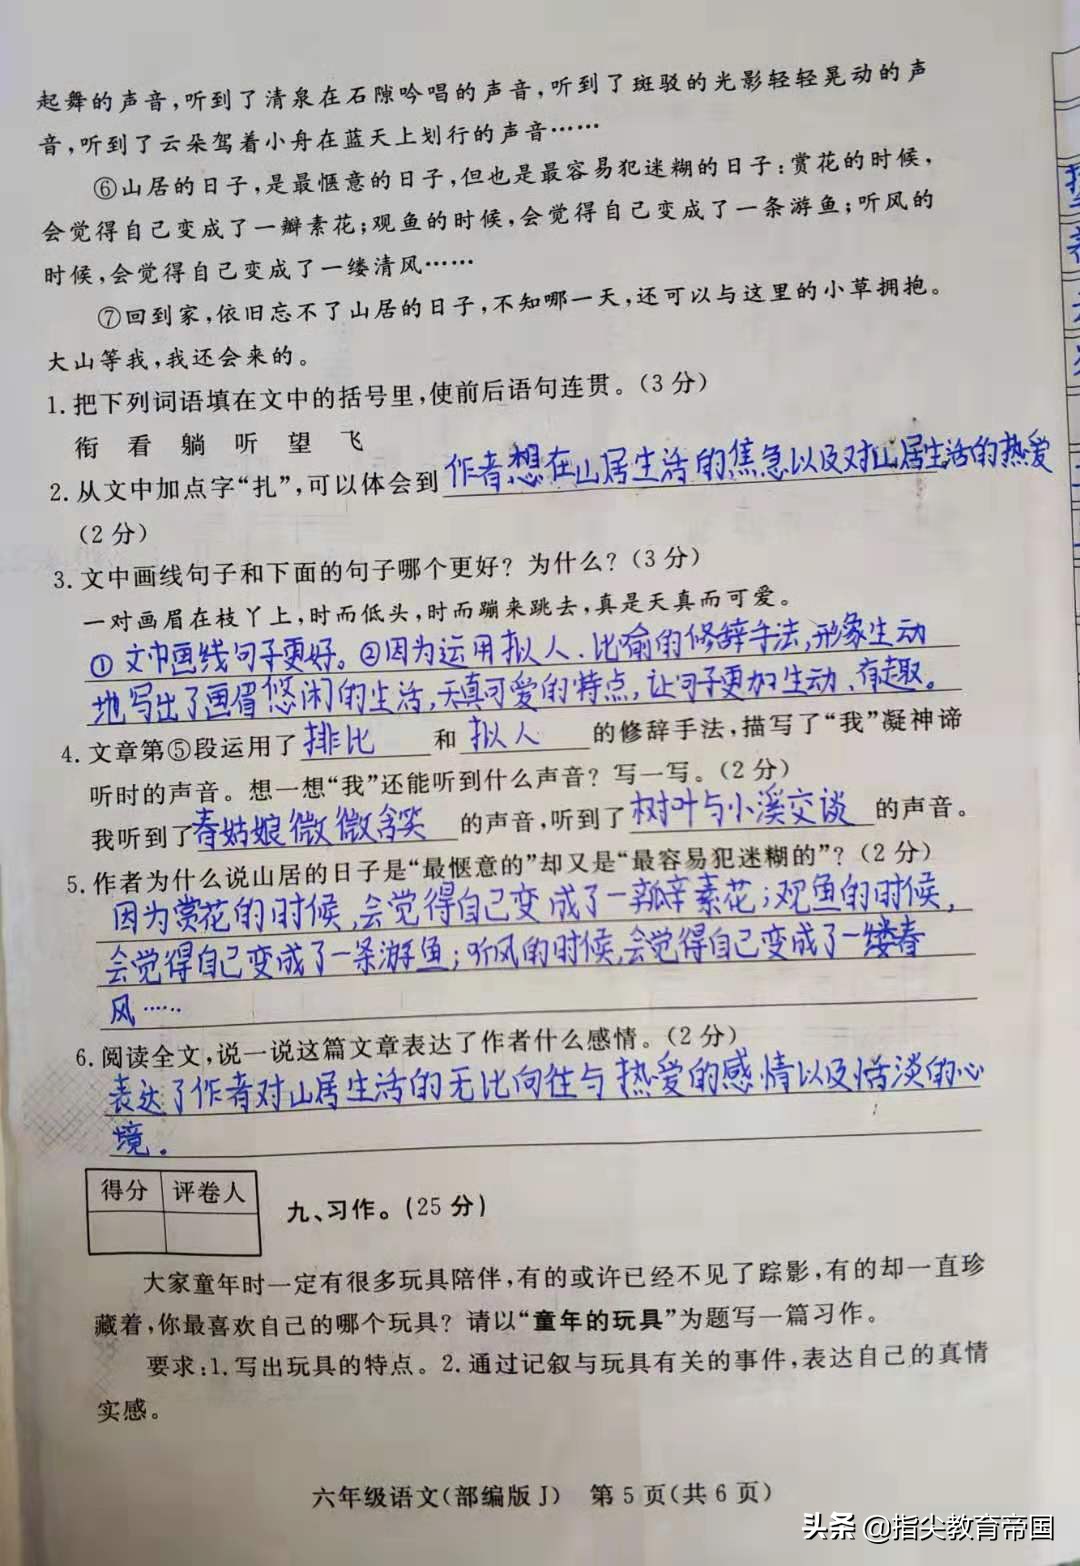 起舞的声音,听到了清泉在石隙吟唱的声音,听到了斑驳的光影轻轻晃动的声
音,听到了云朵驾着小舟在蓝天上划行的声音……
⑥山居的日子,是最惬意的日子,但也是最容易犯迷糊的日子:赏花的时候,
会觉得自己变成了一瓣素花;观鱼的时候,会觉得自己变成了一条游鱼;听风的
时候,会觉得自己变成了一缕清风……
⑦回到家,依旧忘不了山居的日子,不知哪一天,还可以与这里的小草拥抱。
大山等我,我还会来的。
1.把下列词语填在文中的括号里,使前后语句连贯。(3分)
衔 看 躺 听 望 飞
2.从文中加点字“扎”,可以体会到作者想在山居生活的焦急以及对山居生活的热爱
(2分)
3.文中画线句子和下面的句子哪个更好?为什么?(3分)
一对画眉在枝丫上,时而低头,时而蹦来跳去,真是天真而可爱。
①文中画线句子更好。②因为运用拟人、比喻的修辞手法,形象生动
地写出了画眉悠闲的生活,天真可爱的特点,让句子更加生动、有趣。
4.文章第⑤段运用了排比和拟人的修辞手法,描写了“我”凝神谛
听时的声音。想一想“我”还能听到什么声音?写一写。(2分)
我听到了春姑娘微微含笑的声音,听到了树叶与小溪交谈的声音。
5.作者为什么说山居的日子是“最惬意的”却又是“最容易犯迷糊的”?(2分)
因为赏花的时候,会觉得自己变成了一瓣素花;观鱼的时候,
会觉得自己变成了一条游鱼;听风的时候,会觉得自己变成了一缕春
风……
6.阅读全文,说一说这篇文章表达了作者什么感情。(2分)
表达了作者对山居生活的无比向往与热爱的感情以及恬淡的心
境。
得分 评卷人
九、习作。(25分)
大家童年时一定有很多玩具陪伴,有的或许已经不见了踪影,有的却一直珍
藏着,你最喜欢自己的哪个玩具?请以“童年的玩具”为题写一篇习作。
要求:1.写出玩具的特点。2.通过记叙与玩具有关的事件,表达自己的真情
实感。
六年级语文(部编版J) 第5页(共6页)
头条 @指尖教育帝国